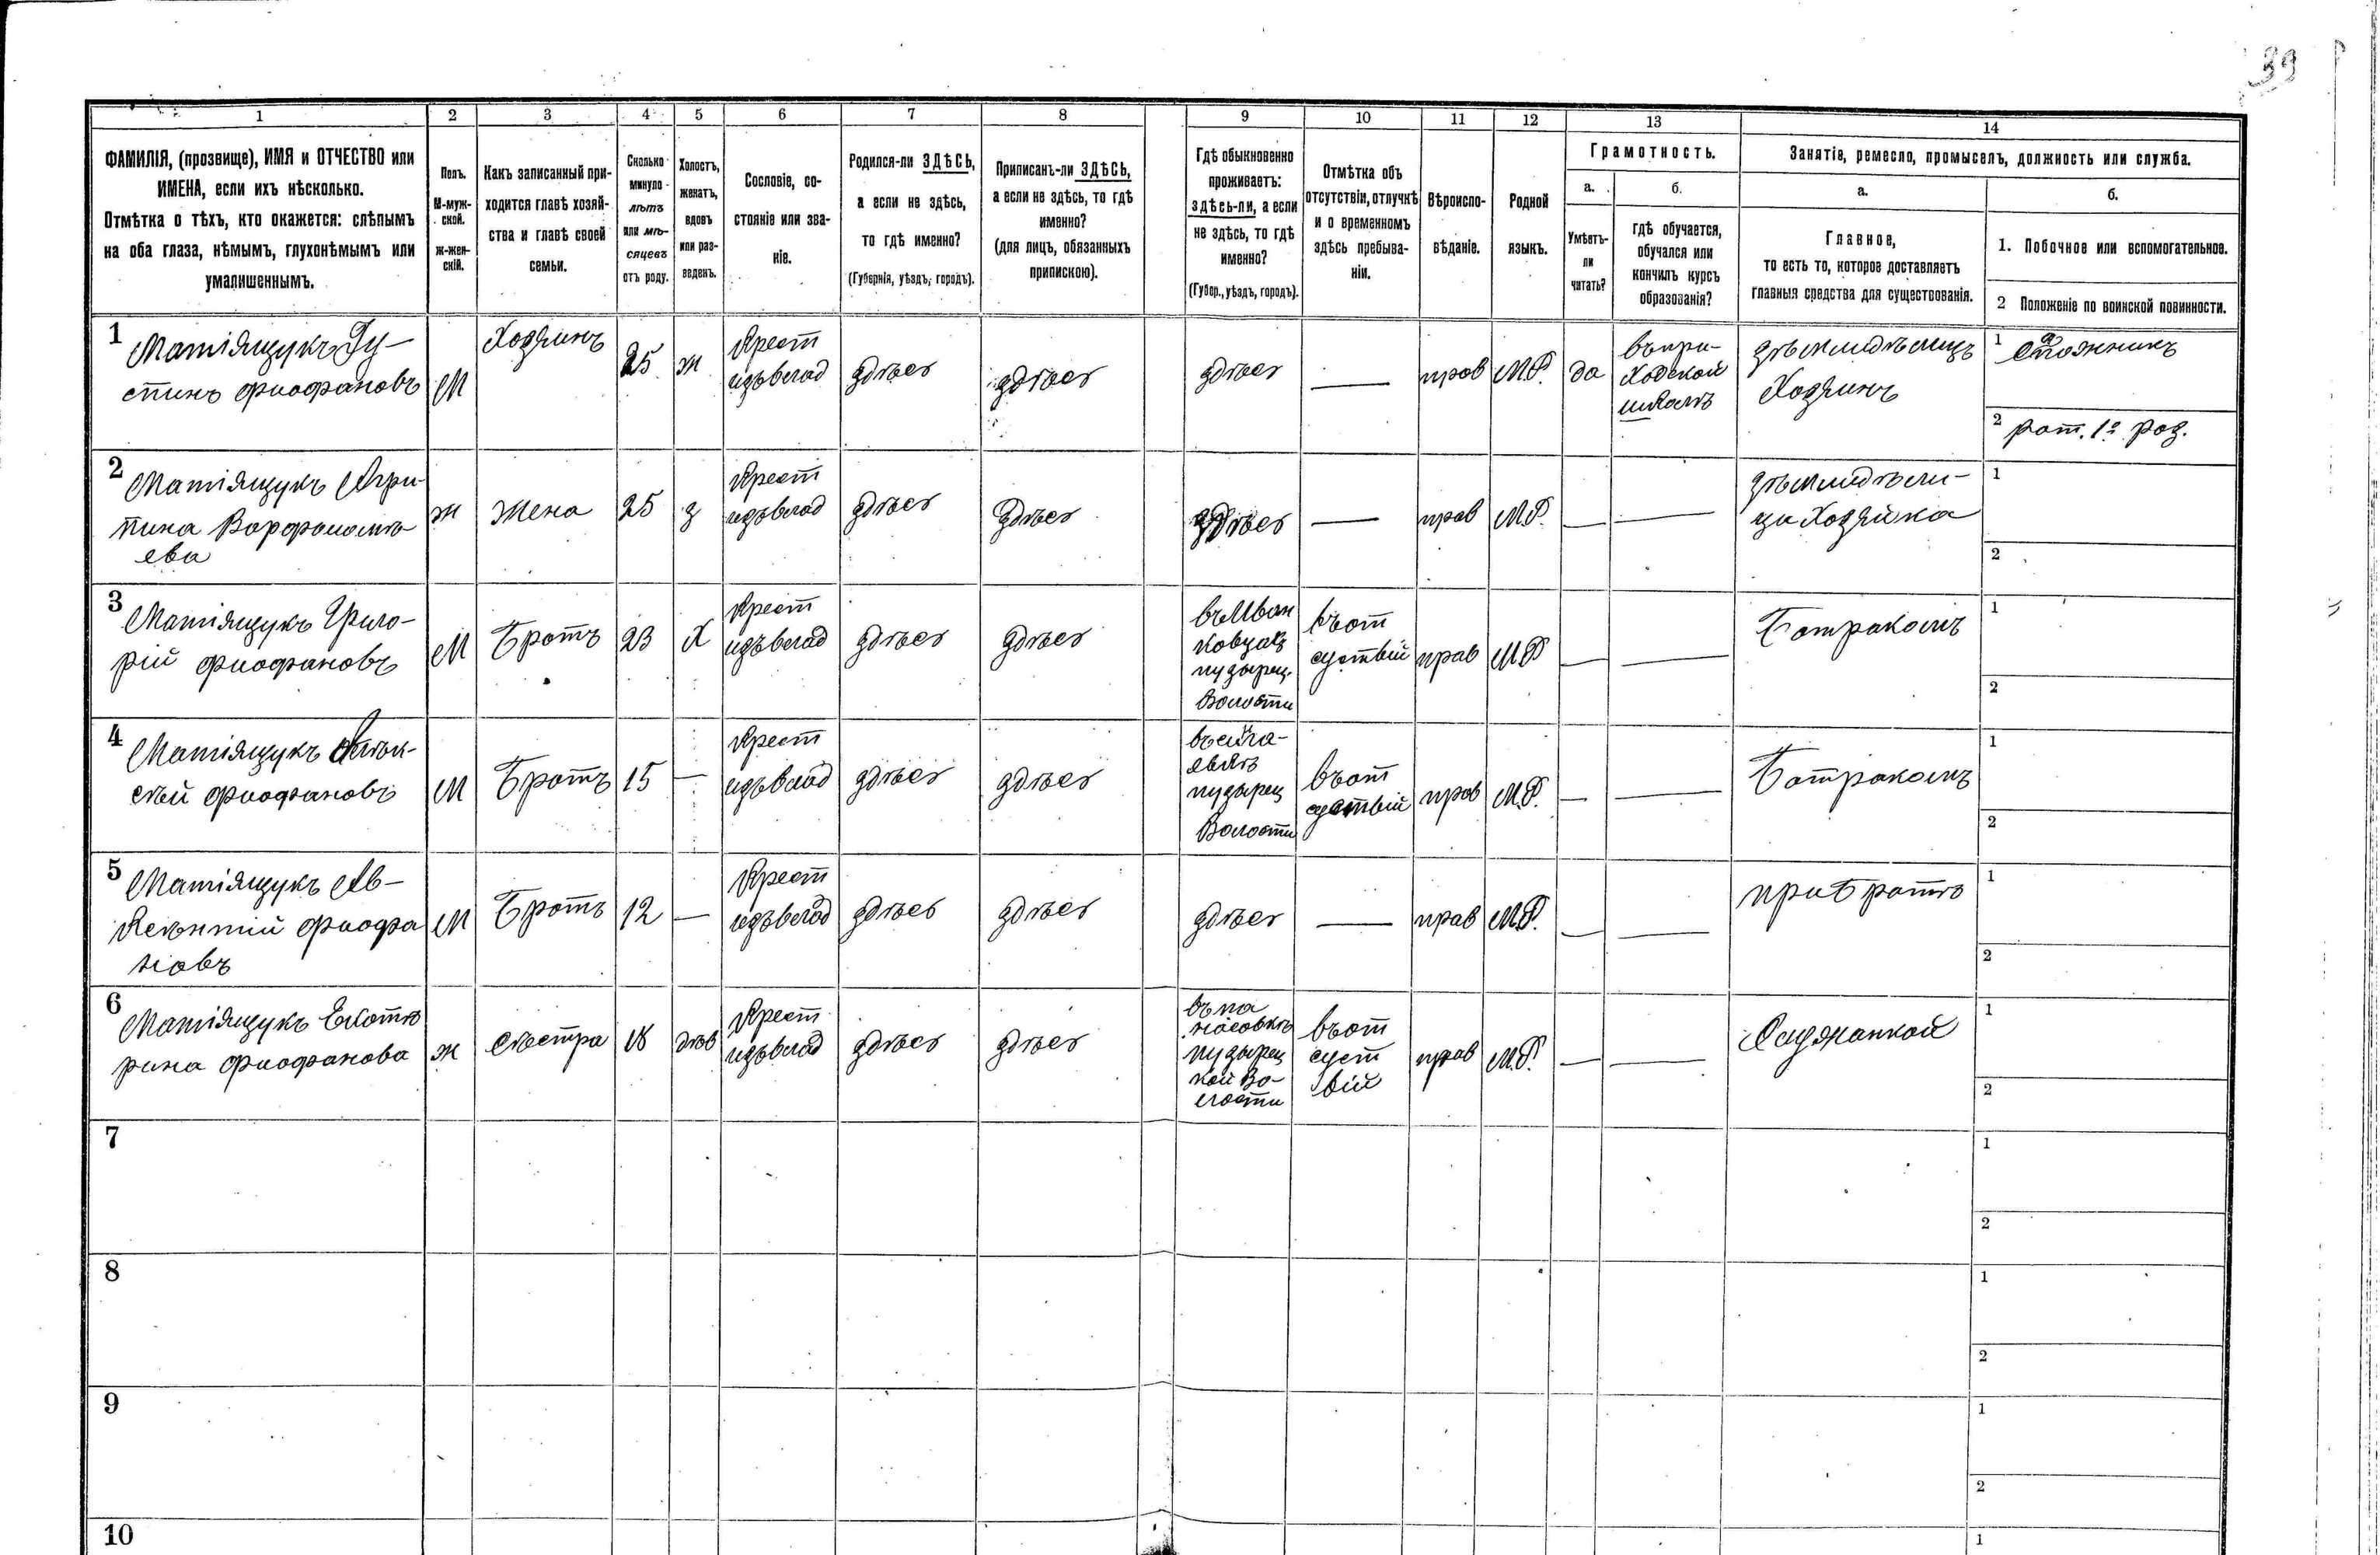 39
1
2
3
4
5
6
7
8
9
10
11
12
13
14
ФАМИЛІЯ, (прозвище), ИМЯ и ОТЧЕСТВО или
ИМЕНА, если ихъ нѣсколько.
Отмѣтка о тѣхъ, кто окажется: слѣпымъ
на оба глаза, нѣмымъ, глухонѣмымъ или
умалишеннымъ.
Полъ.
М-муж-
ской.
ж-жен-
скій.
Какъ записанный при-
ходится главѣ хозяй-
ства и главѣ своей
семьи.
Сколько
минуло
лѣтъ
или мѣ-
сяцевъ
отъ роду.
Холостъ,
женатъ,
вдовъ
или раз-
веденъ.
Сословіе, со-
стояніе или зва-
ніе.
Родился-ли ЗДѢСЬ,
а если не здѣсь,
то гдѣ именно?
(Губернія, уѣздъ, городъ).
Приписанъ-ли ЗДѢСЬ,
а если не здѣсь, то гдѣ
именно?
(для лицъ, обязанныхъ
припискою).
Гдѣ обыкновенно
проживаетъ:
здѣсь-ли, а если
не здѣсь, то гдѣ
именно?
(Губер., уѣздъ, городъ).
Отмѣтка объ
отсутствіи, отлучкѣ
и о временномъ
здѣсь пребыва-
ніи.
Вѣроиспо-
вѣданіе.
Родной
языкъ.
Грамотность.
а.
Умѣетъ-
ли
читать?
б.
гдѣ обучается,
обучался или
кончилъ курсъ
образованія?
Занятіе, ремесло, промыселъ, должность или служба.
а.
Главное,
то есть то, которое доставляетъ
главныя средства для существованія.
б.
1. Побочное или вспомогательное.
2 Положеніе по воинской повинности.
1
Матіящукъ Гу-
стинъ Фиофановъ
М
Хозяинъ
25
ж
Крест
изъ влад
здѣсь
здѣсь
здѣсь
—
прав
М.Р.
да
въ при-
ходской
школѣ
Хозяинъ
1
2 рат. 1го раз.
2
Матіящукъ Агри-
пина Варфоломѣ
ева
ж
Жена
25
з
Крест
изъ влад
здѣсь
здѣсь
здѣсь
—
прав
М.Р.
—
—
ца Хозяйка
1
2
3
Матіящукъ Григо-
рій Фиофановъ
М
Братъ
23
Х
Крест
изъ влад
здѣсь
здѣсь
въ Иван
ковцахъ
пузырец.
Волости
въ от
суствій
прав
М.Р.
—
—
Батракомъ
1
2
4
Матіящукъ Алѣк-
сѣй Фиофановъ
М
Братъ
15
—
Крест
изъ влад
здѣсь
здѣсь
пузырец
Волости
въ от
суствій
прав
М.Р.
—
—
Батракомъ
1
2
5
Матіящукъ Ав-
ксѣнтій Фиофа
новъ
М
Братъ
12
—
Крест
изъ влад
здѣсь
здѣсь
здѣсь
—
прав
М.Р.
—
—
при Братѣ
1
2
6
Матіящукъ Екатѣ
рина Фиофанова
ж
Сѣстра
18
дѣв
Крест
изъ влад
здѣсь
здѣсь
въ па
насовкѣ
пузырец
кой Во-
лости
въ от
суст
вій
прав
М.Р.
—
—
Служанкой
1
2
7
1
2
8
1
2
9
1
2
10
1